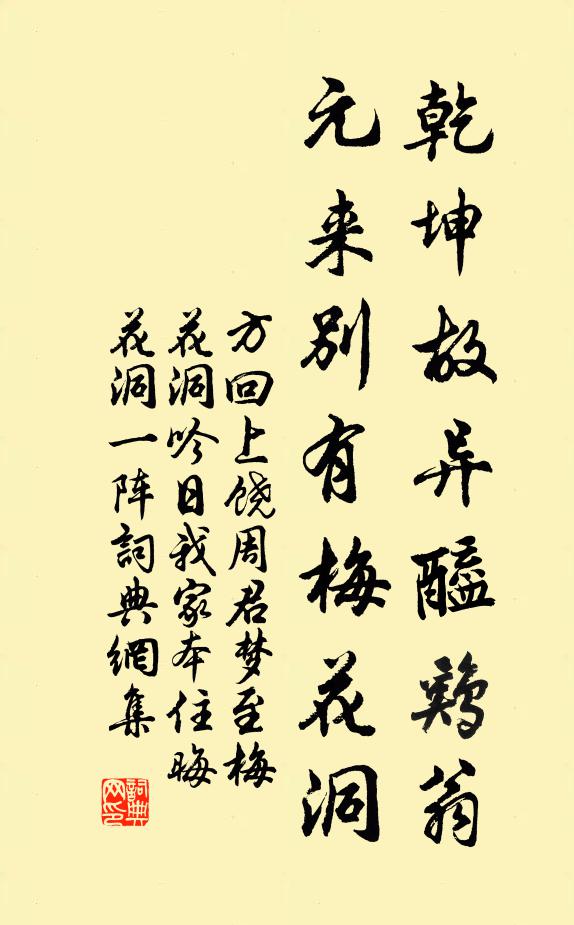 乾坤故异醯鸡翁
元来别有梅花洞
方回上饶周君梦至梅
花洞吟日我家本住晦
花洞一阵詞典網集
詞典网印